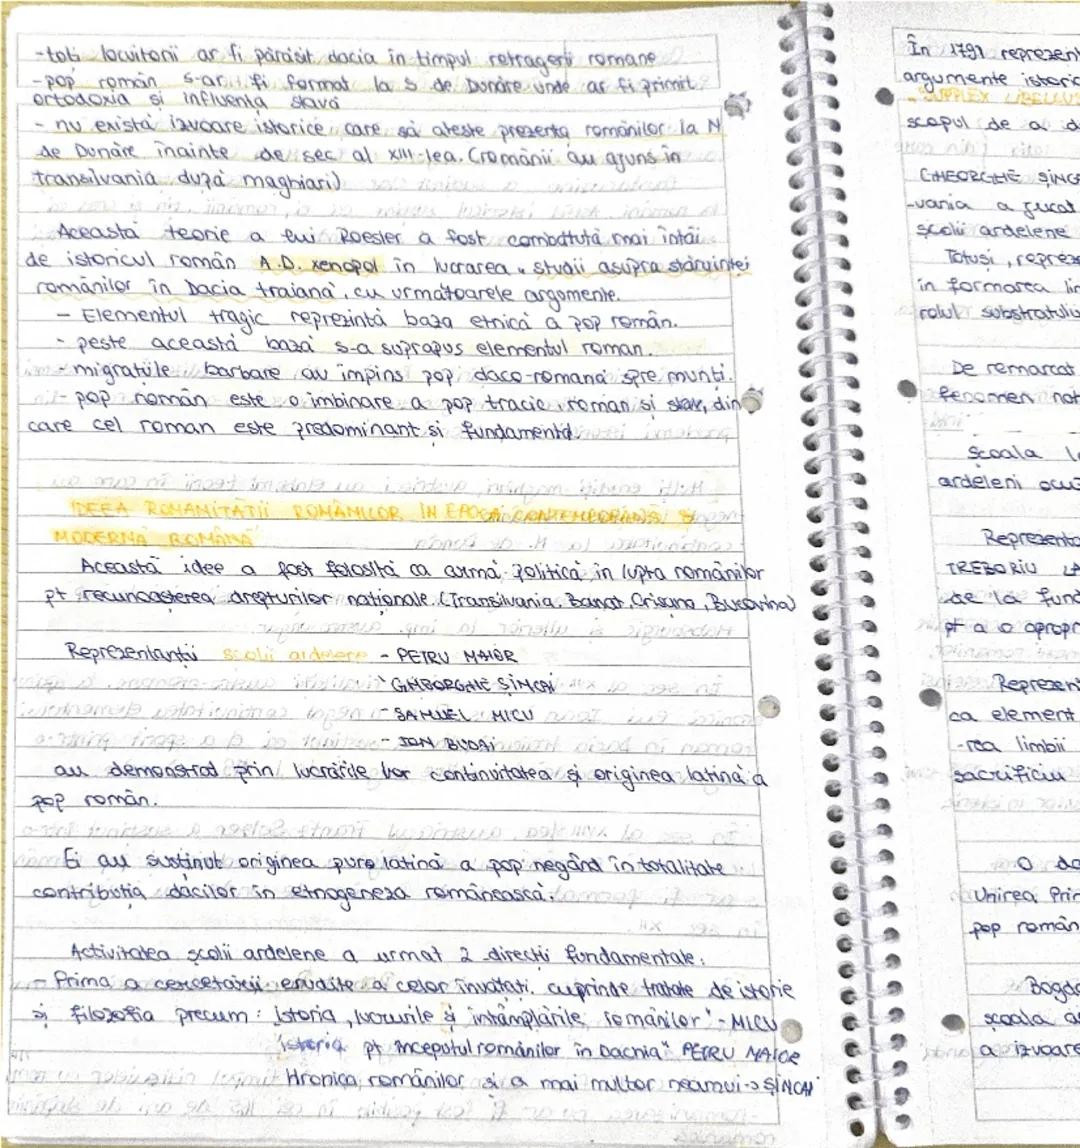 -toți locuitorii ar fi părăsit dacia în timpul retragerii romane
-pop român s-ar fi format la S de Dunăre unde ar fi primit
ortodoxia și influența slavă
- nu există izvoare istorice care să ateste prezența românilor la N
de Dunăre înainte de sec al XIII-lea. (românii au ajuns în
transilvania după maghiari)
Această teorie a lui Roesler a fost combătută mai întâi
de istoricul român A.D. xenopol în lucrarea „studii asupra stăruinței
românilor în Dacia traiană", cu următoarele argomente.
- Elementul tragic reprezintă baza etnică a pop român.
- peste această bază s-a suprapus elementul roman.
- migrațiile barbare au împins pop daco-romană spre munți.
- pop român este o imbinare a pop tracic, roman și slav, din
care cel roman este predominant și fundamental.
IDEEA ROMANITĂȚII ROMÂNILOR ÎN EPOCA CONTEMPORANĂ ȘI
MODERNĂ ROMÂNĂ
Această idee a fost folosită ca armă politică în lupta românilor
pt recunoașterea drepturilor naționale. (Transilvania, Banat, Crișana, Bucovina)
Reprezentanții școlii ardelene - PETRU MAIOR
- GHEORGHE ȘINCAI
- SAMUEL MICU
- ION BUDAI
au demonstrat prin lucrările lor continuitatea și originea latină a
pop român.
Ei au susținut originea pură latină a pop negând în totalitate
contribuția dacilor în etnogeneza românească.
Activitatea școlii ardelene a urmat 2 direcții fundamentale:
- Prima a cercetării erudite a celor învățați, cuprinde tratate de istorie
și filozofia precum: istoria, lucrurile și întâmplările românilor" - MICU
istoria pt începutul românilor în Dachia" PETRU MAIOR
Hronica românilor și a mai multor neamuri -> ȘINCAI
În 1791 reprezent
argumente istoric
„SUPPLEX LIBELLUS
scopul de a
GHEORGHE ȘINCA
-vania a jucat
școlii ardelene
Totuși, repreze
în formarea lim
rolul substratului
De remarcat
fenomen not
școala
ardeleni
Reprezenta
TREBONIU LA
de la fund
pt a o apropr
Reprezen
ca element
-rea limbii
sacrificiu
O
Unirea Prin
pop român
Bogda
școala
a izvoare